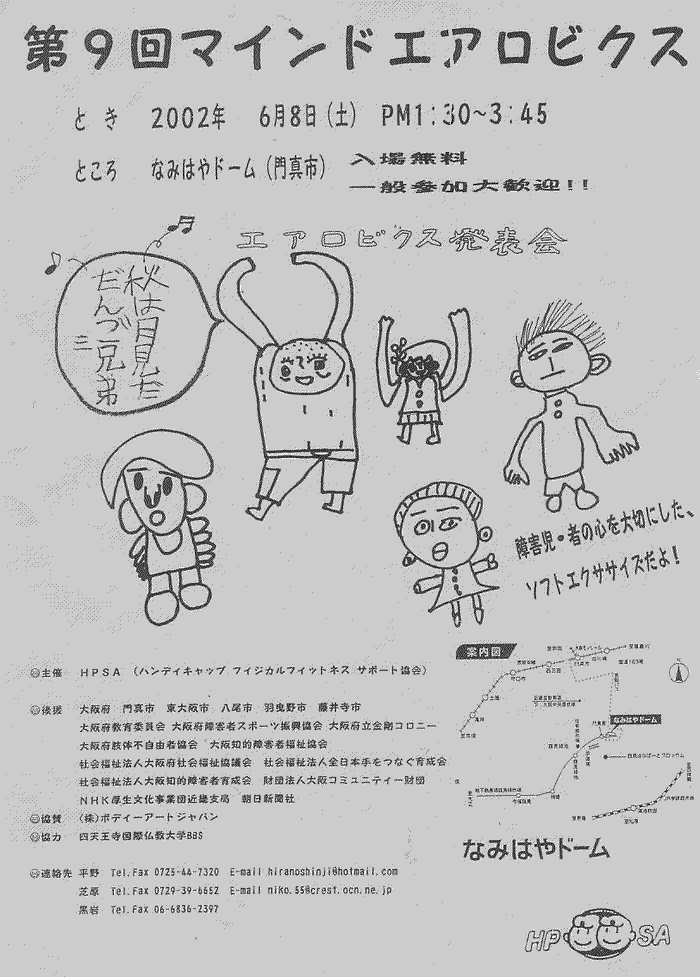 第9回マインドエアロビクス
とき 2002年 6月8日(土) PM1:30~3:45
ところ なみはやドーム(門真市) 入場無料
一般参加大歓迎!!
エアロビクス発表会
秋は月見た
だんご三兄弟
障害児・者の心を大切にした、
ソフトエクササイズだよ!
主催 HPSA (ハンディキャップ フィジカルフィットネス サポート協会)
後援 大阪府 門真市 東大阪市 八尾市 羽曳野市 藤井寺市
大阪府教育委員会 大阪府障害者スポーツ振興協会 大阪府立金剛コロニー
大阪府肢体不自由者協会 大阪知的障害者福祉協会
社会福祉法人大阪府社会福祉協議会 社会福祉法人全日本手をつなぐ育成会
社会福祉法人大阪知的障害者育成会 財団法人大阪コミュニティー財団
NHK厚生文化事業団近畿支局 朝日新聞社
協賛 (株)ボディーアートジャパン
協力 四天王寺国際仏教大学BBS
連絡先 平野 Tel.Fax 0725-44-7320 E-mail hiranoshinji@hotmail.com
芝原 Tel.Fax 0729-39-6652 E-mail niko.55@crest.ocn.ne.jp
黒岩 Tel.Fax 06-6836-2397
案内図
なみはやドーム
なみはやドーム
HPSA